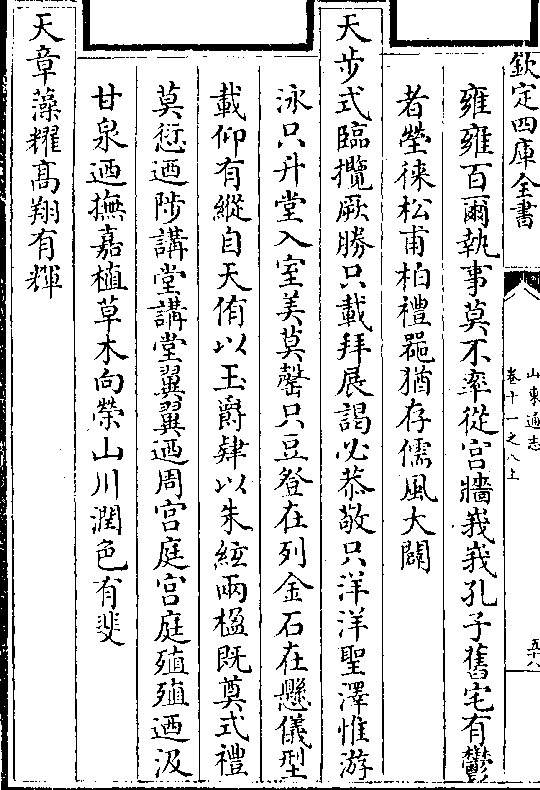 欽定四庫全書
山東通志
卷十一之八上
五十八
雍雍百爾執事莫不率從宫牆峩峩孔子舊宅有鬱
者塋徠松甫柏禮噐猶存儒風大闢
天步式臨攬厥勝只載拜展謁必恭敬只洋洋聖澤惟游
泳只升堂入室美莫罄只豆豋在列金石在懸儀型
載仰有縱自天侑以玉爵肆以朱絃兩楹既奠式禮
莫愆迺陟講堂講堂翼翼迺周宫庭宫庭殖殖迺汲
甘泉迺撫嘉植草木向榮山川潤色有斐
天章藻耀高翔有輝